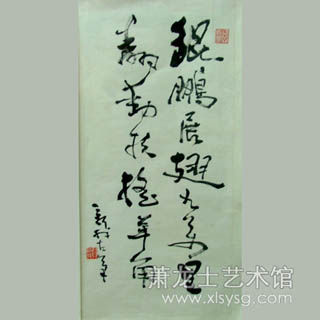 鯤鵬展翅九萬里
翻動扶搖羊角
萧龙士艺术馆
www.xlsysg.com